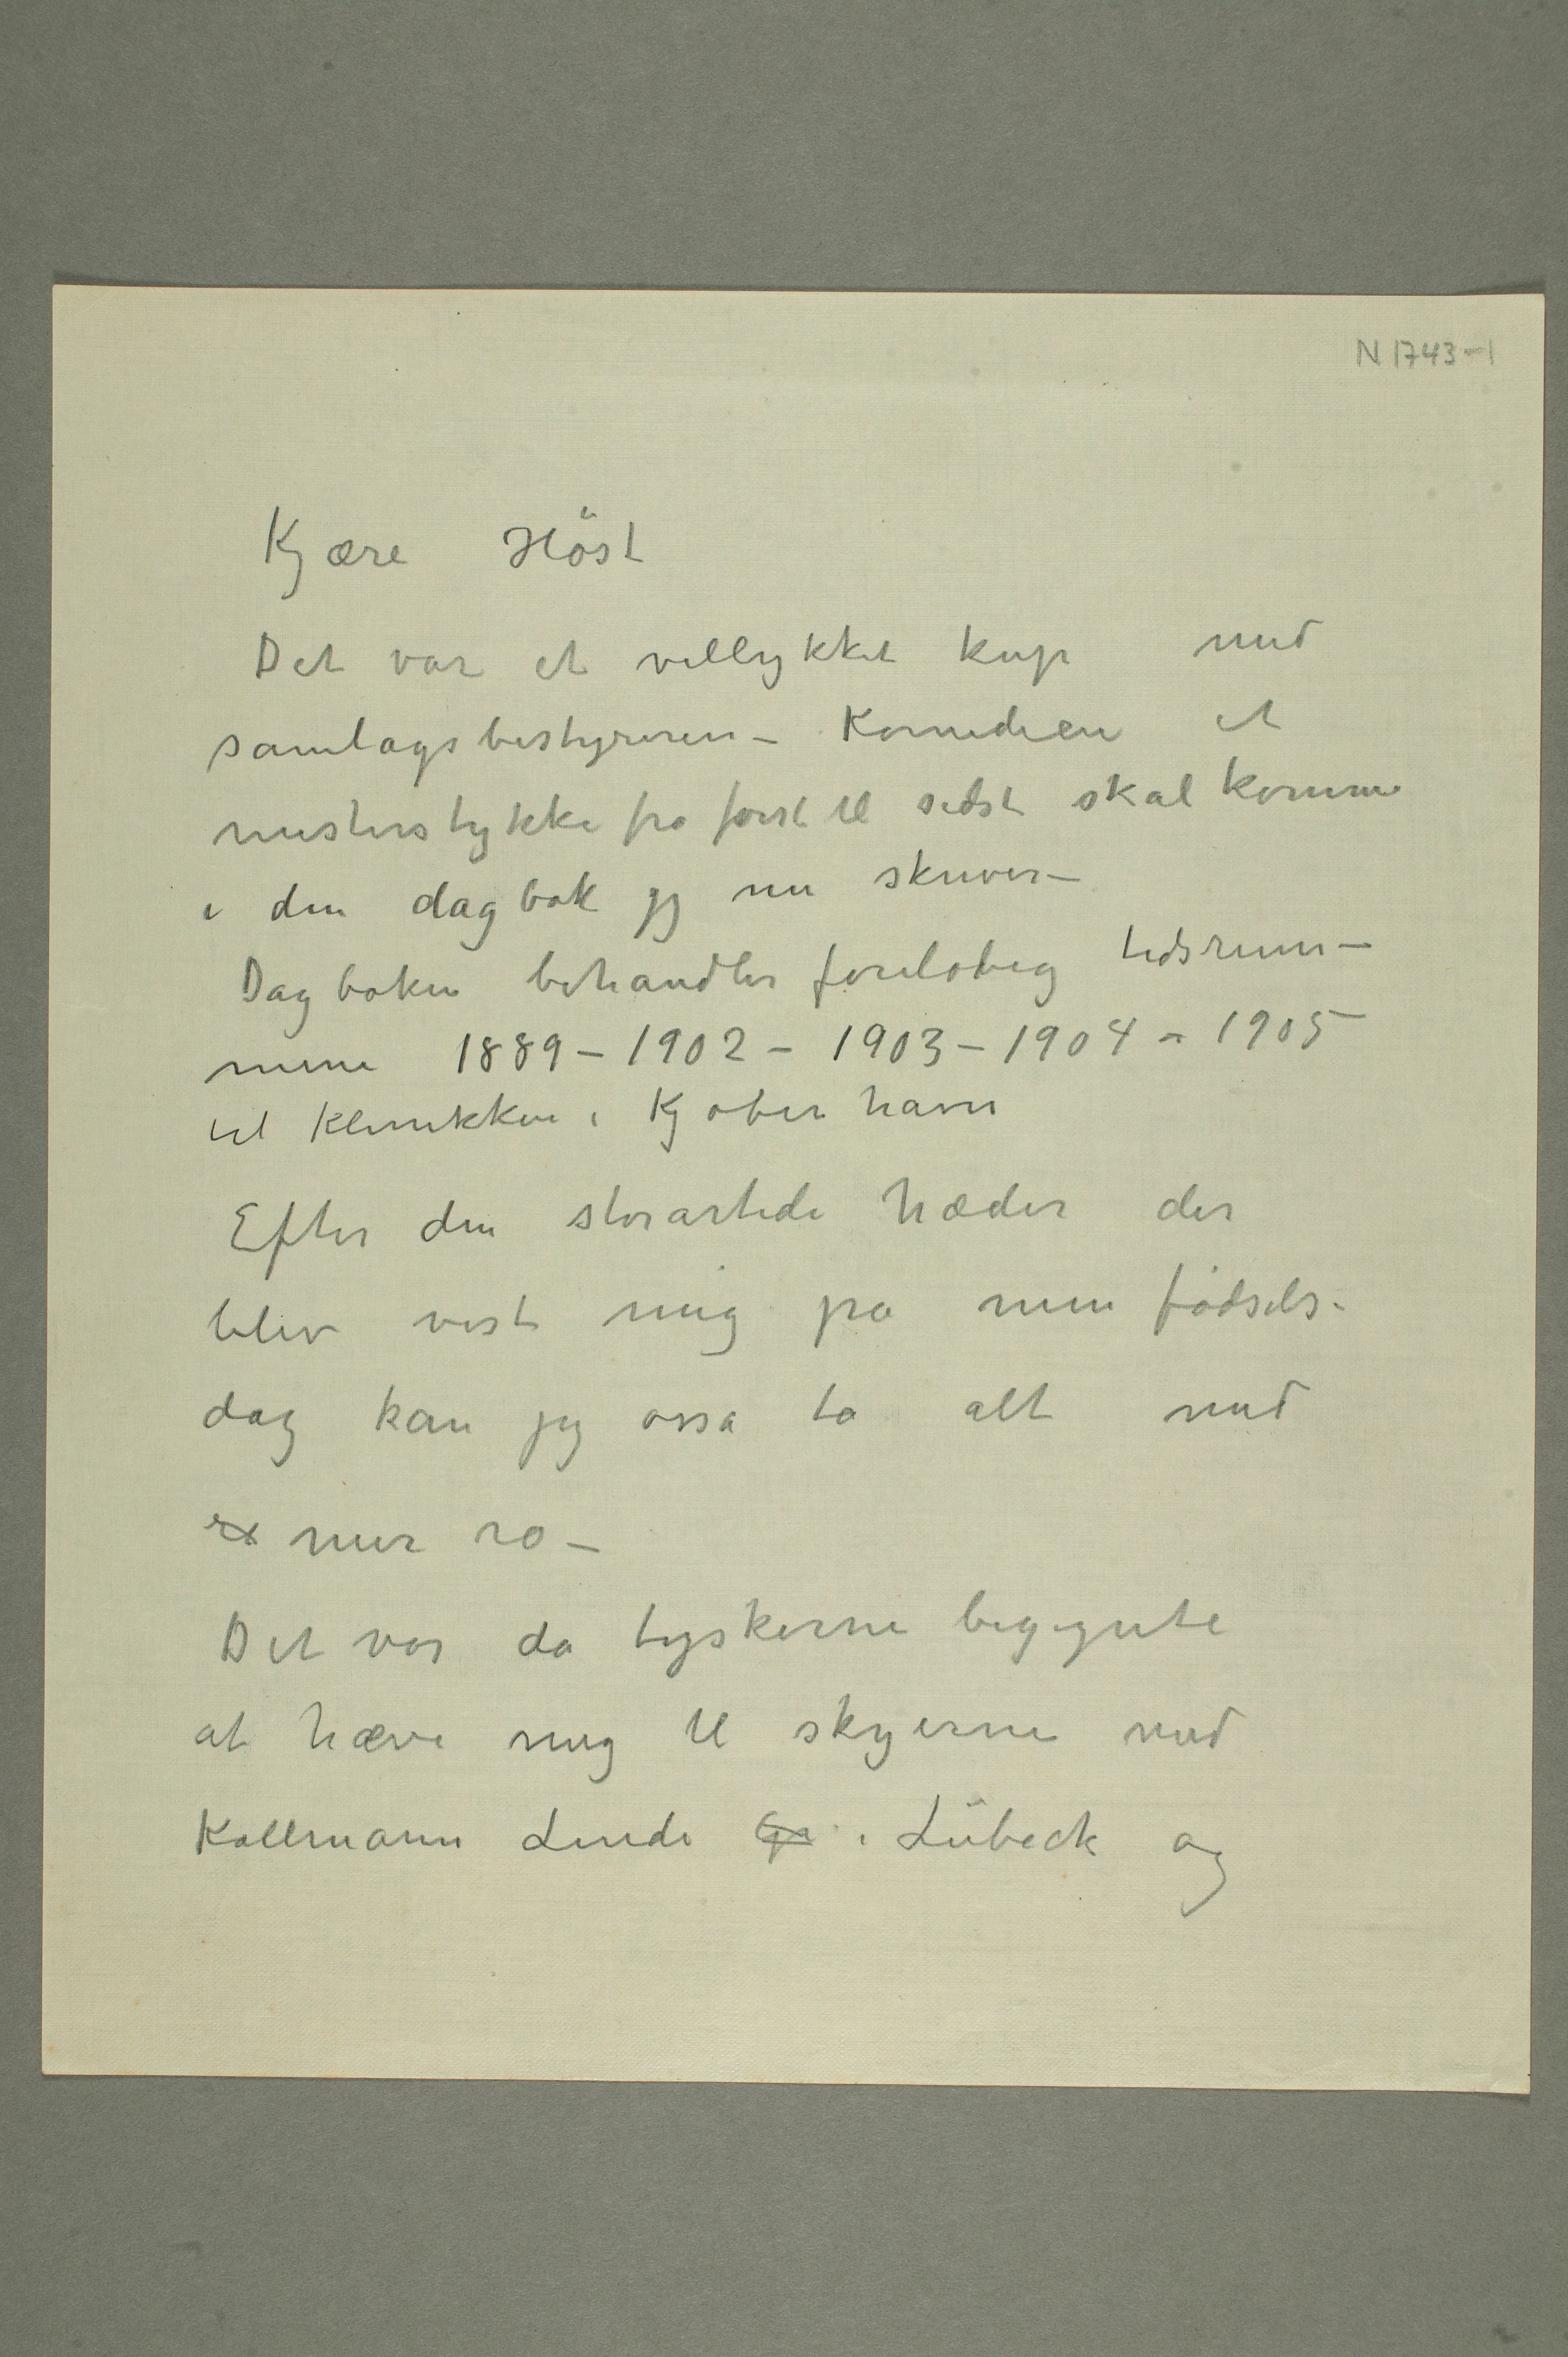 N 1743-1
Kjære Höst
Det var et vellykket kup med
samlagsbestyreren – Komedien et
mesterstykke fra først til sidst skal komme
i den dagbok jeg nu skriver –
Dagboken behandler foreløbig tidsrum–
mene 1889 – 1902 – 1903 – 1904 – 1905
til Klinikken i Kjøbenhavn
Efter den storartede hæder der
blev vist mig på min fødsels-
dag kan jeg osså ta alt med
mer ro –
Det var da tyskerne begynte
at hæve mig til skyerne med
Kollmann Linde i Lübeck og